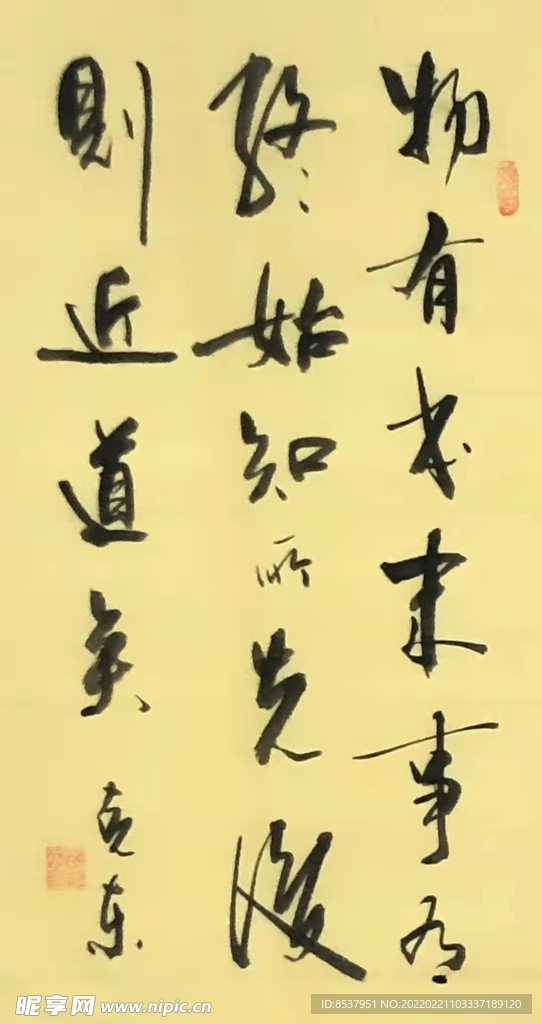 物有本末事有
終始知所先後
則近道矣
克东
昵享网 www.nipic.cn
ID:8537951 NO:20220221103337189120